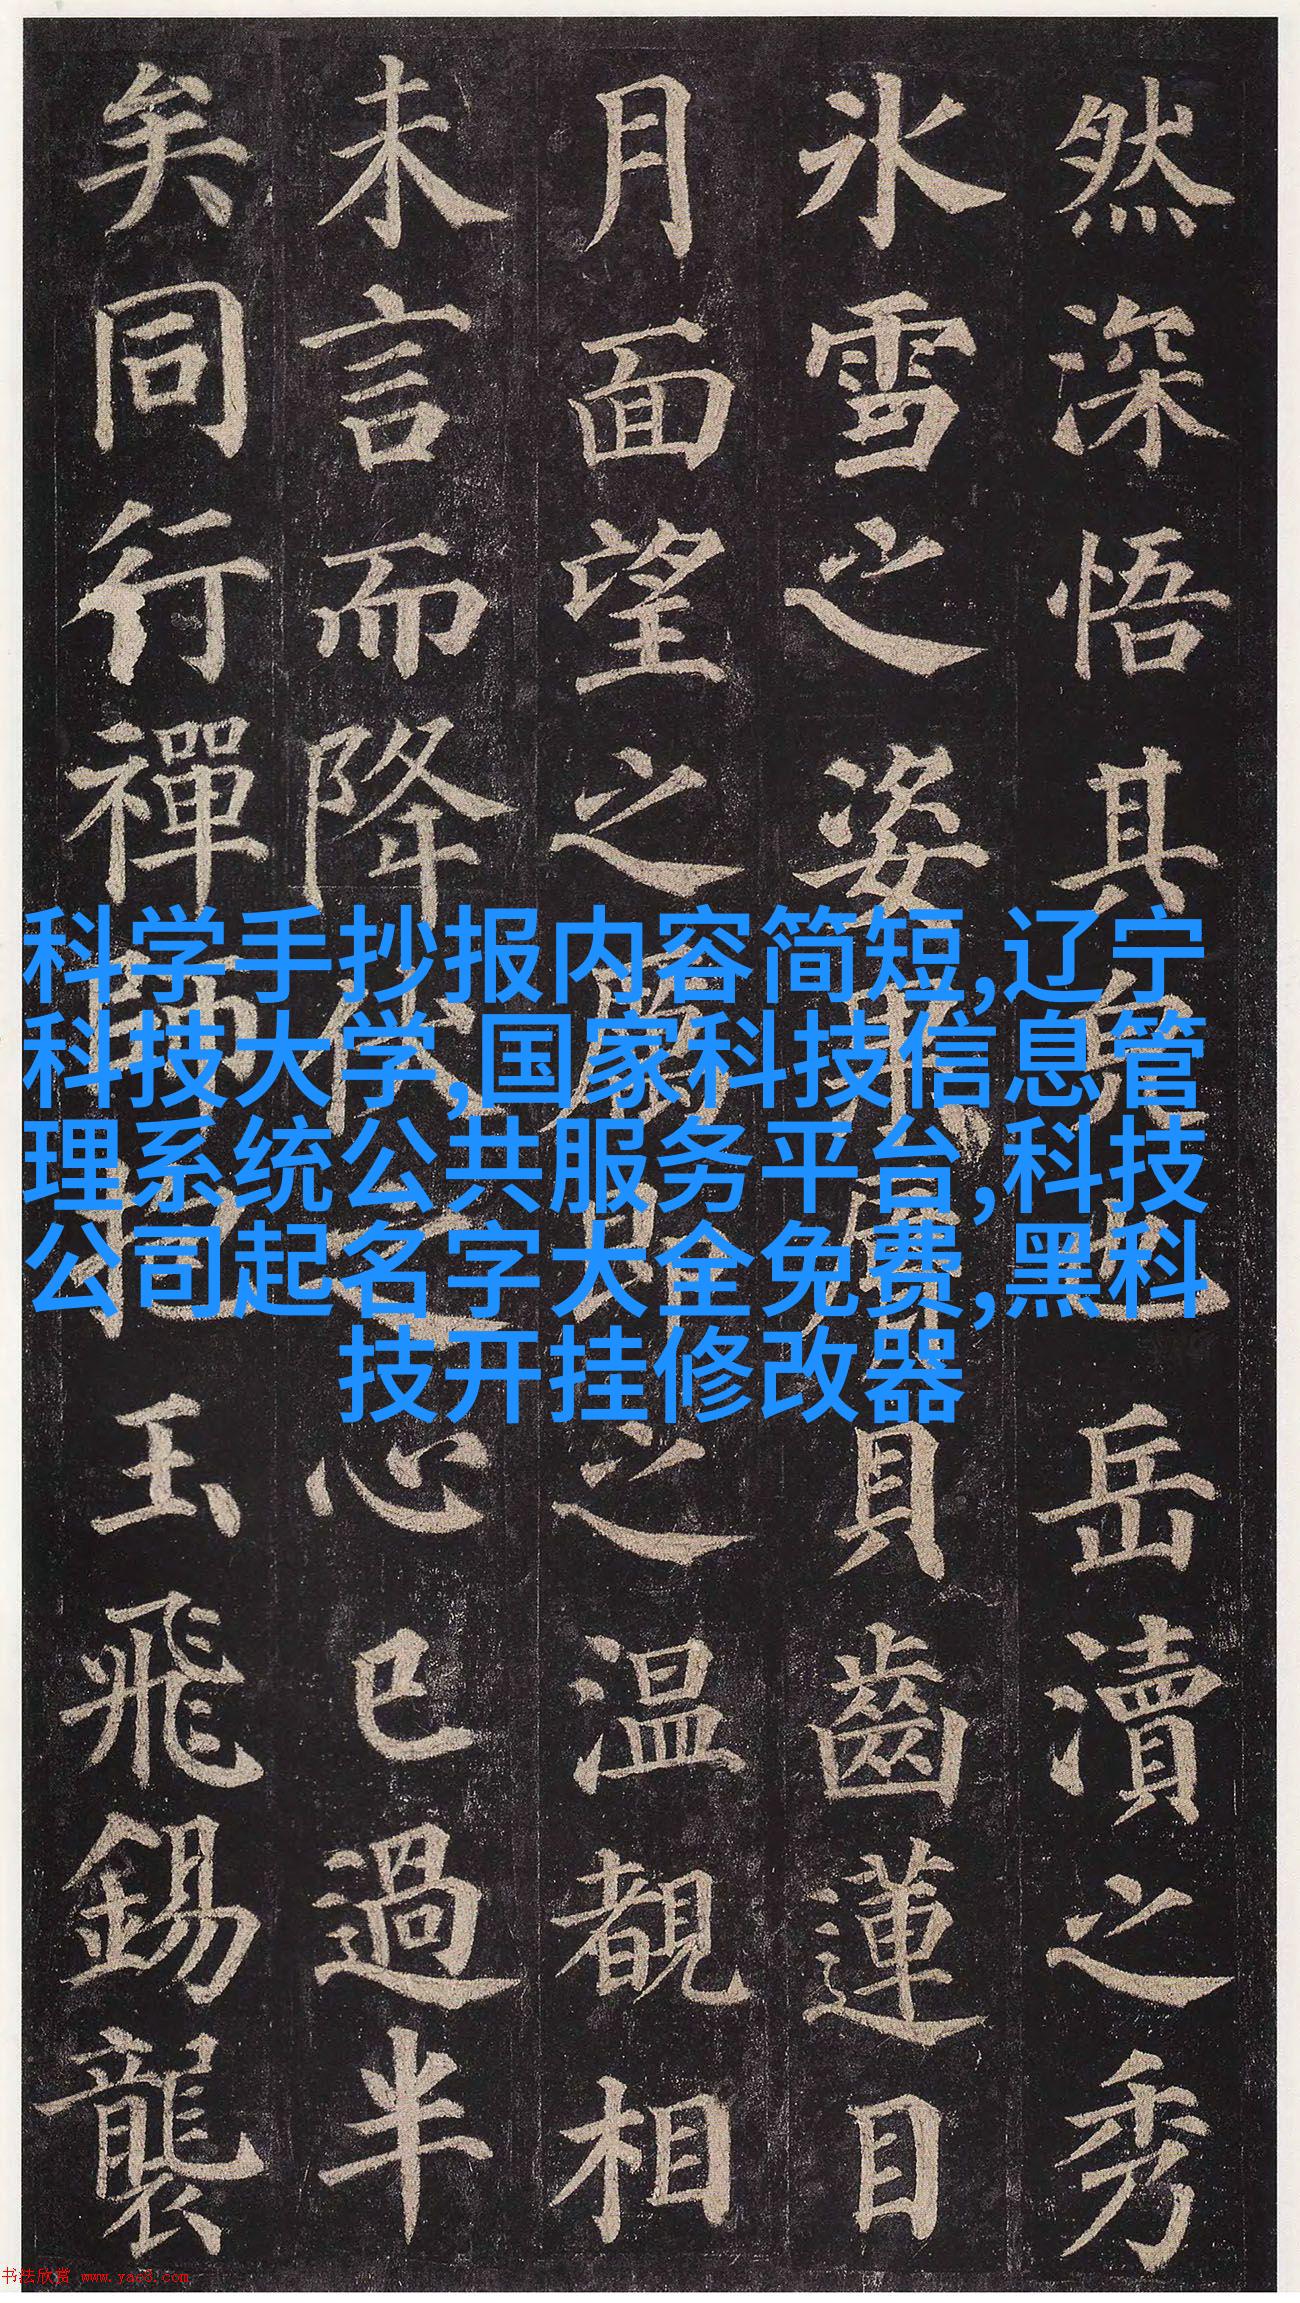 然深悟其也岳瀆之秀
氷雪之姿果脣貝齒蓮目
月面望之厲即之温覩相
未言而降伏之心已過半
矣同行禪師抱玉飛錫襲
科学手抄报内容简短,辽宁
科技大学,国家科技信息管
理系统公共服务平台,科技
公司起名字大全免费,黑科
技开挂修改器
书法欣赏 www.yac8.com